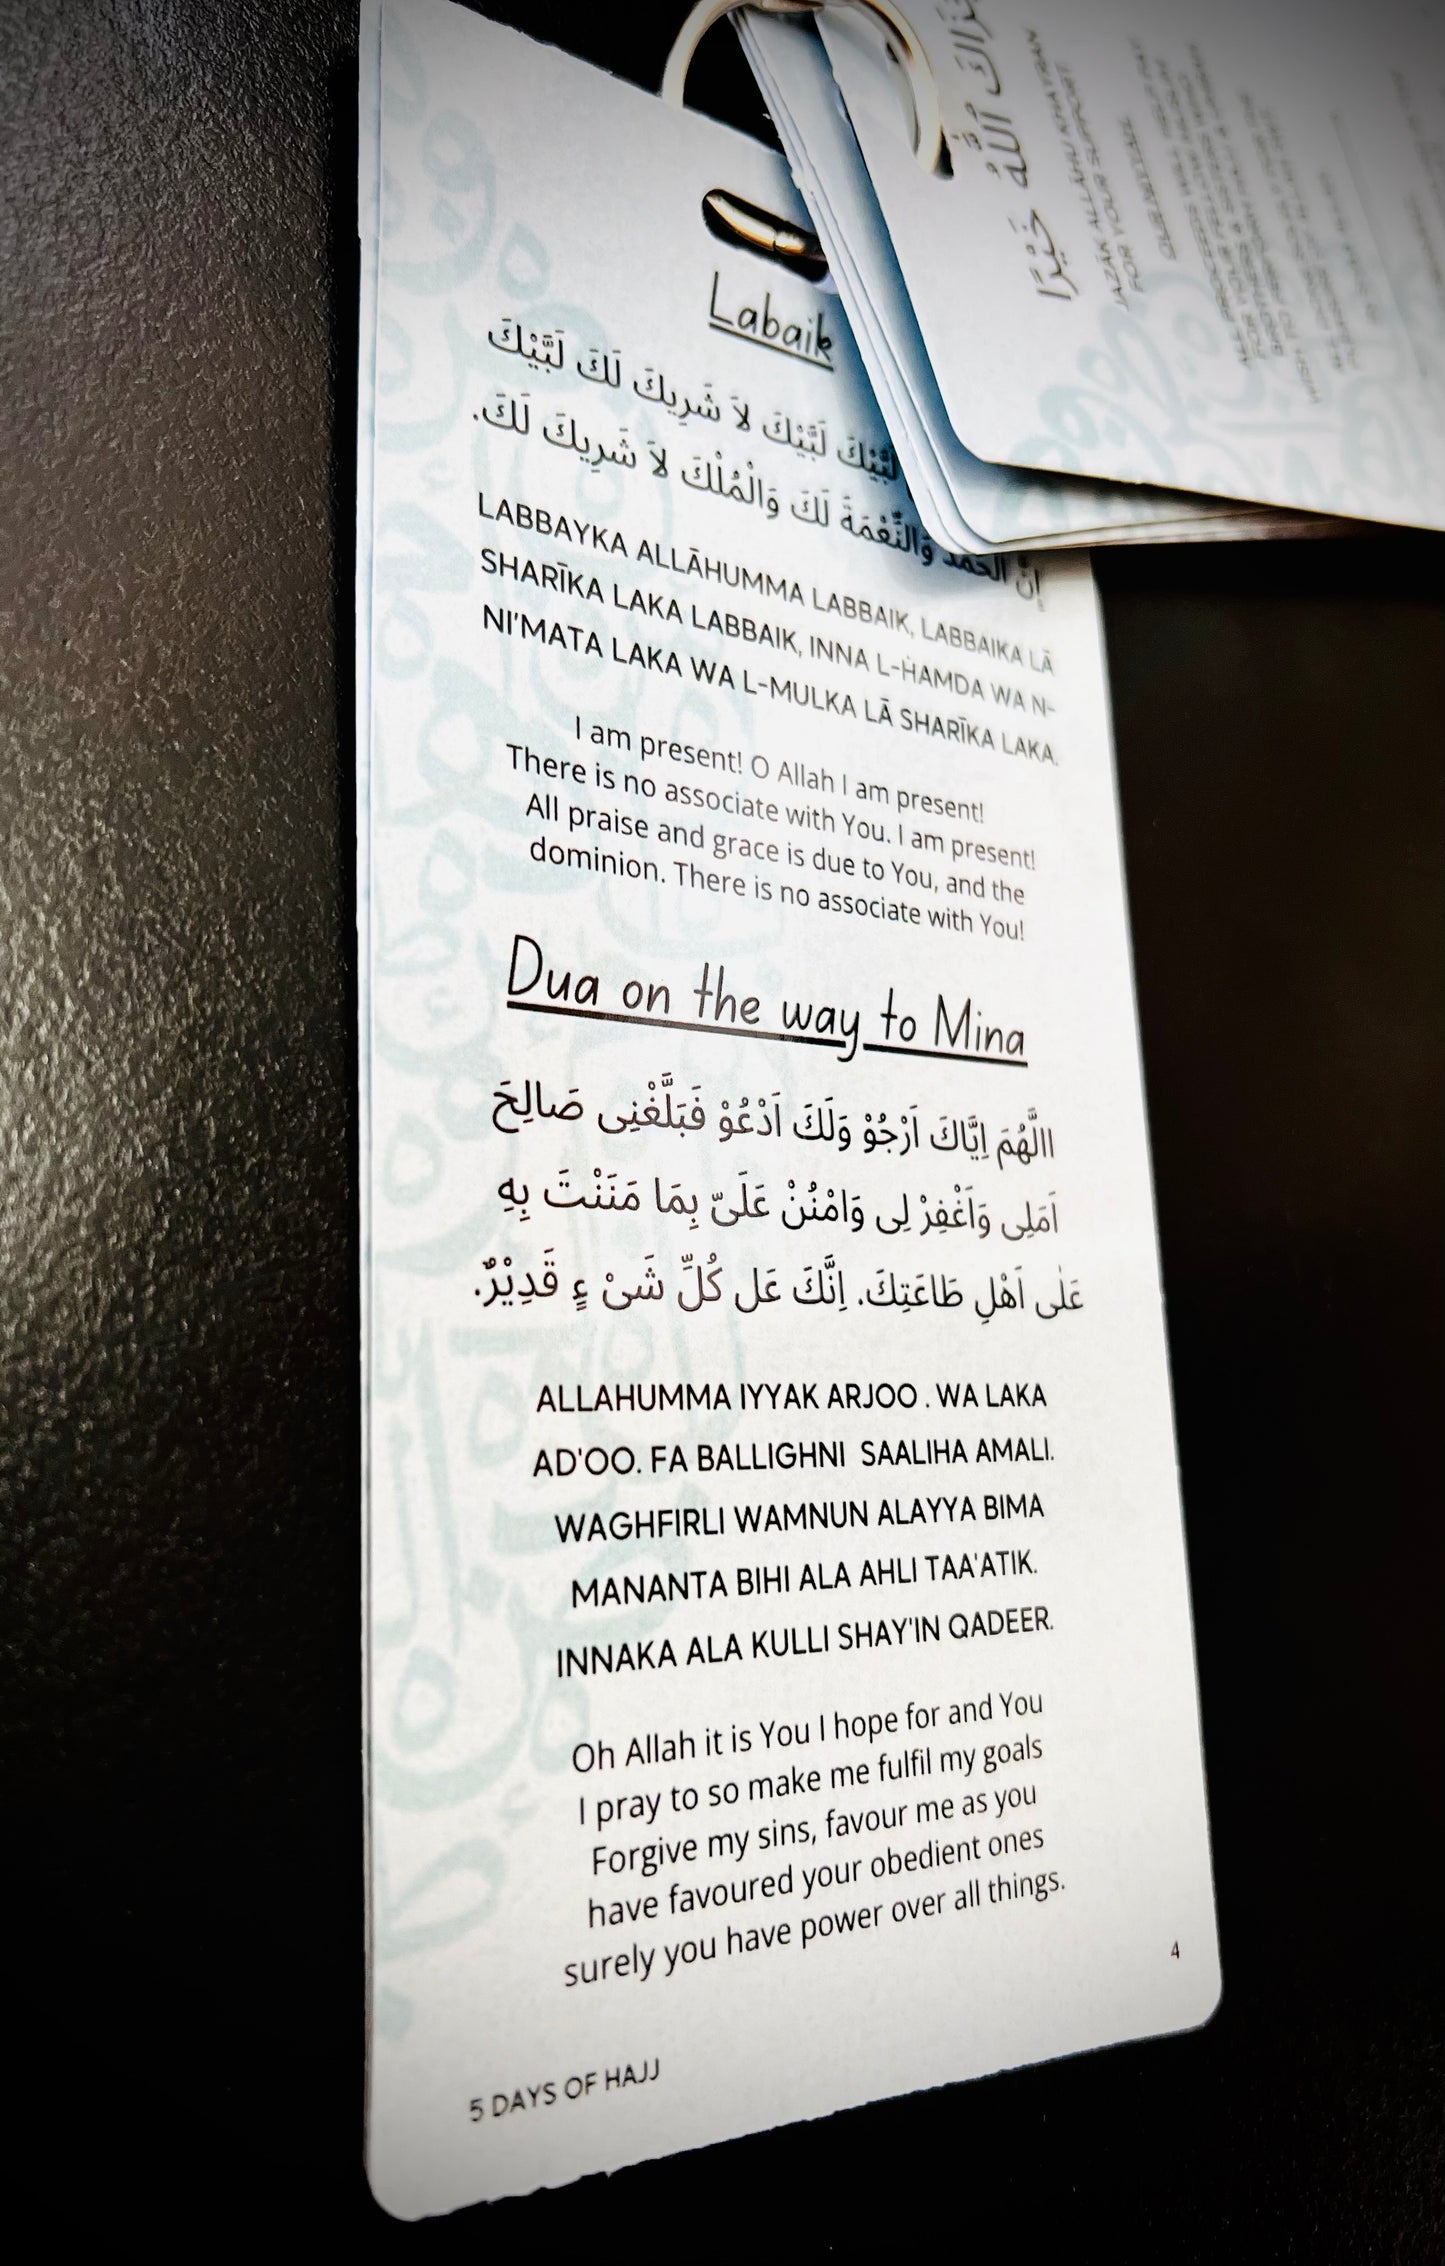 Labaik
لَبَّيْكَ لَبَّيْكَ لاَ شَرِيكَ لَكَ لَبَّيْكَ
إِنَّ الْحَمْدَ وَالنِّعْمَةَ لَكَ وَالْمُلْكَ لاَ شَرِيكَ لَكَ.
LABBAYKA ALLĀHUMMA LABBAIK, LABBAIKA LĀ
SHARĪKA LAKA LABBAIK, INNA L-ḢAMDA WA N-
NI'MATA LAKA WA L-MULKA LĀ SHARĪKA LAKA.
I am present! O Allah I am present!
There is no associate with You. I am present!
All praise and grace is due to You, and the
dominion. There is no associate with You!
Dua on the way to Mina
االَّهُمَ اِيَّاكَ اَرْجُوْ وَلَكَ اَدْعُوْ فَبَلَّغْنِى صَالِحَ
اَمَلِى وَاَغْفِرْ لِى وَامْنُنْ عَلَىّ بِمَا مَنَنْتَ بِهِ
عَلٰى اَهْلِ طَاعَتِكَ. اِنَّكَ عَل كُلِّ شَىْ ءٍ قَدِيْرٌ.
ALLAHUMMA IYYAK ARJOO . WA LAKA
AD'OO. FA BALLIGHNI SAALIHA AMALI.
WAGHFIRLI WAMNUN ALAYYA BIMA
MANANTA BIHI ALA AHLI TAA'ATIK.
INNAKA ALA KULLI SHAY'IN QADEER.
Oh Allah it is You I hope for and You
I pray to so make me fulfil my goals
Forgive my sins, favour me as you
have favoured your obedient ones
surely you have power over all things.
4
5 DAYS OF HAJJ
جَزَاكَ اللّٰهُ خَيْرًا
JAZĀK ALLĀHU KHAYRAN
FOR YOUR SUPPORT!